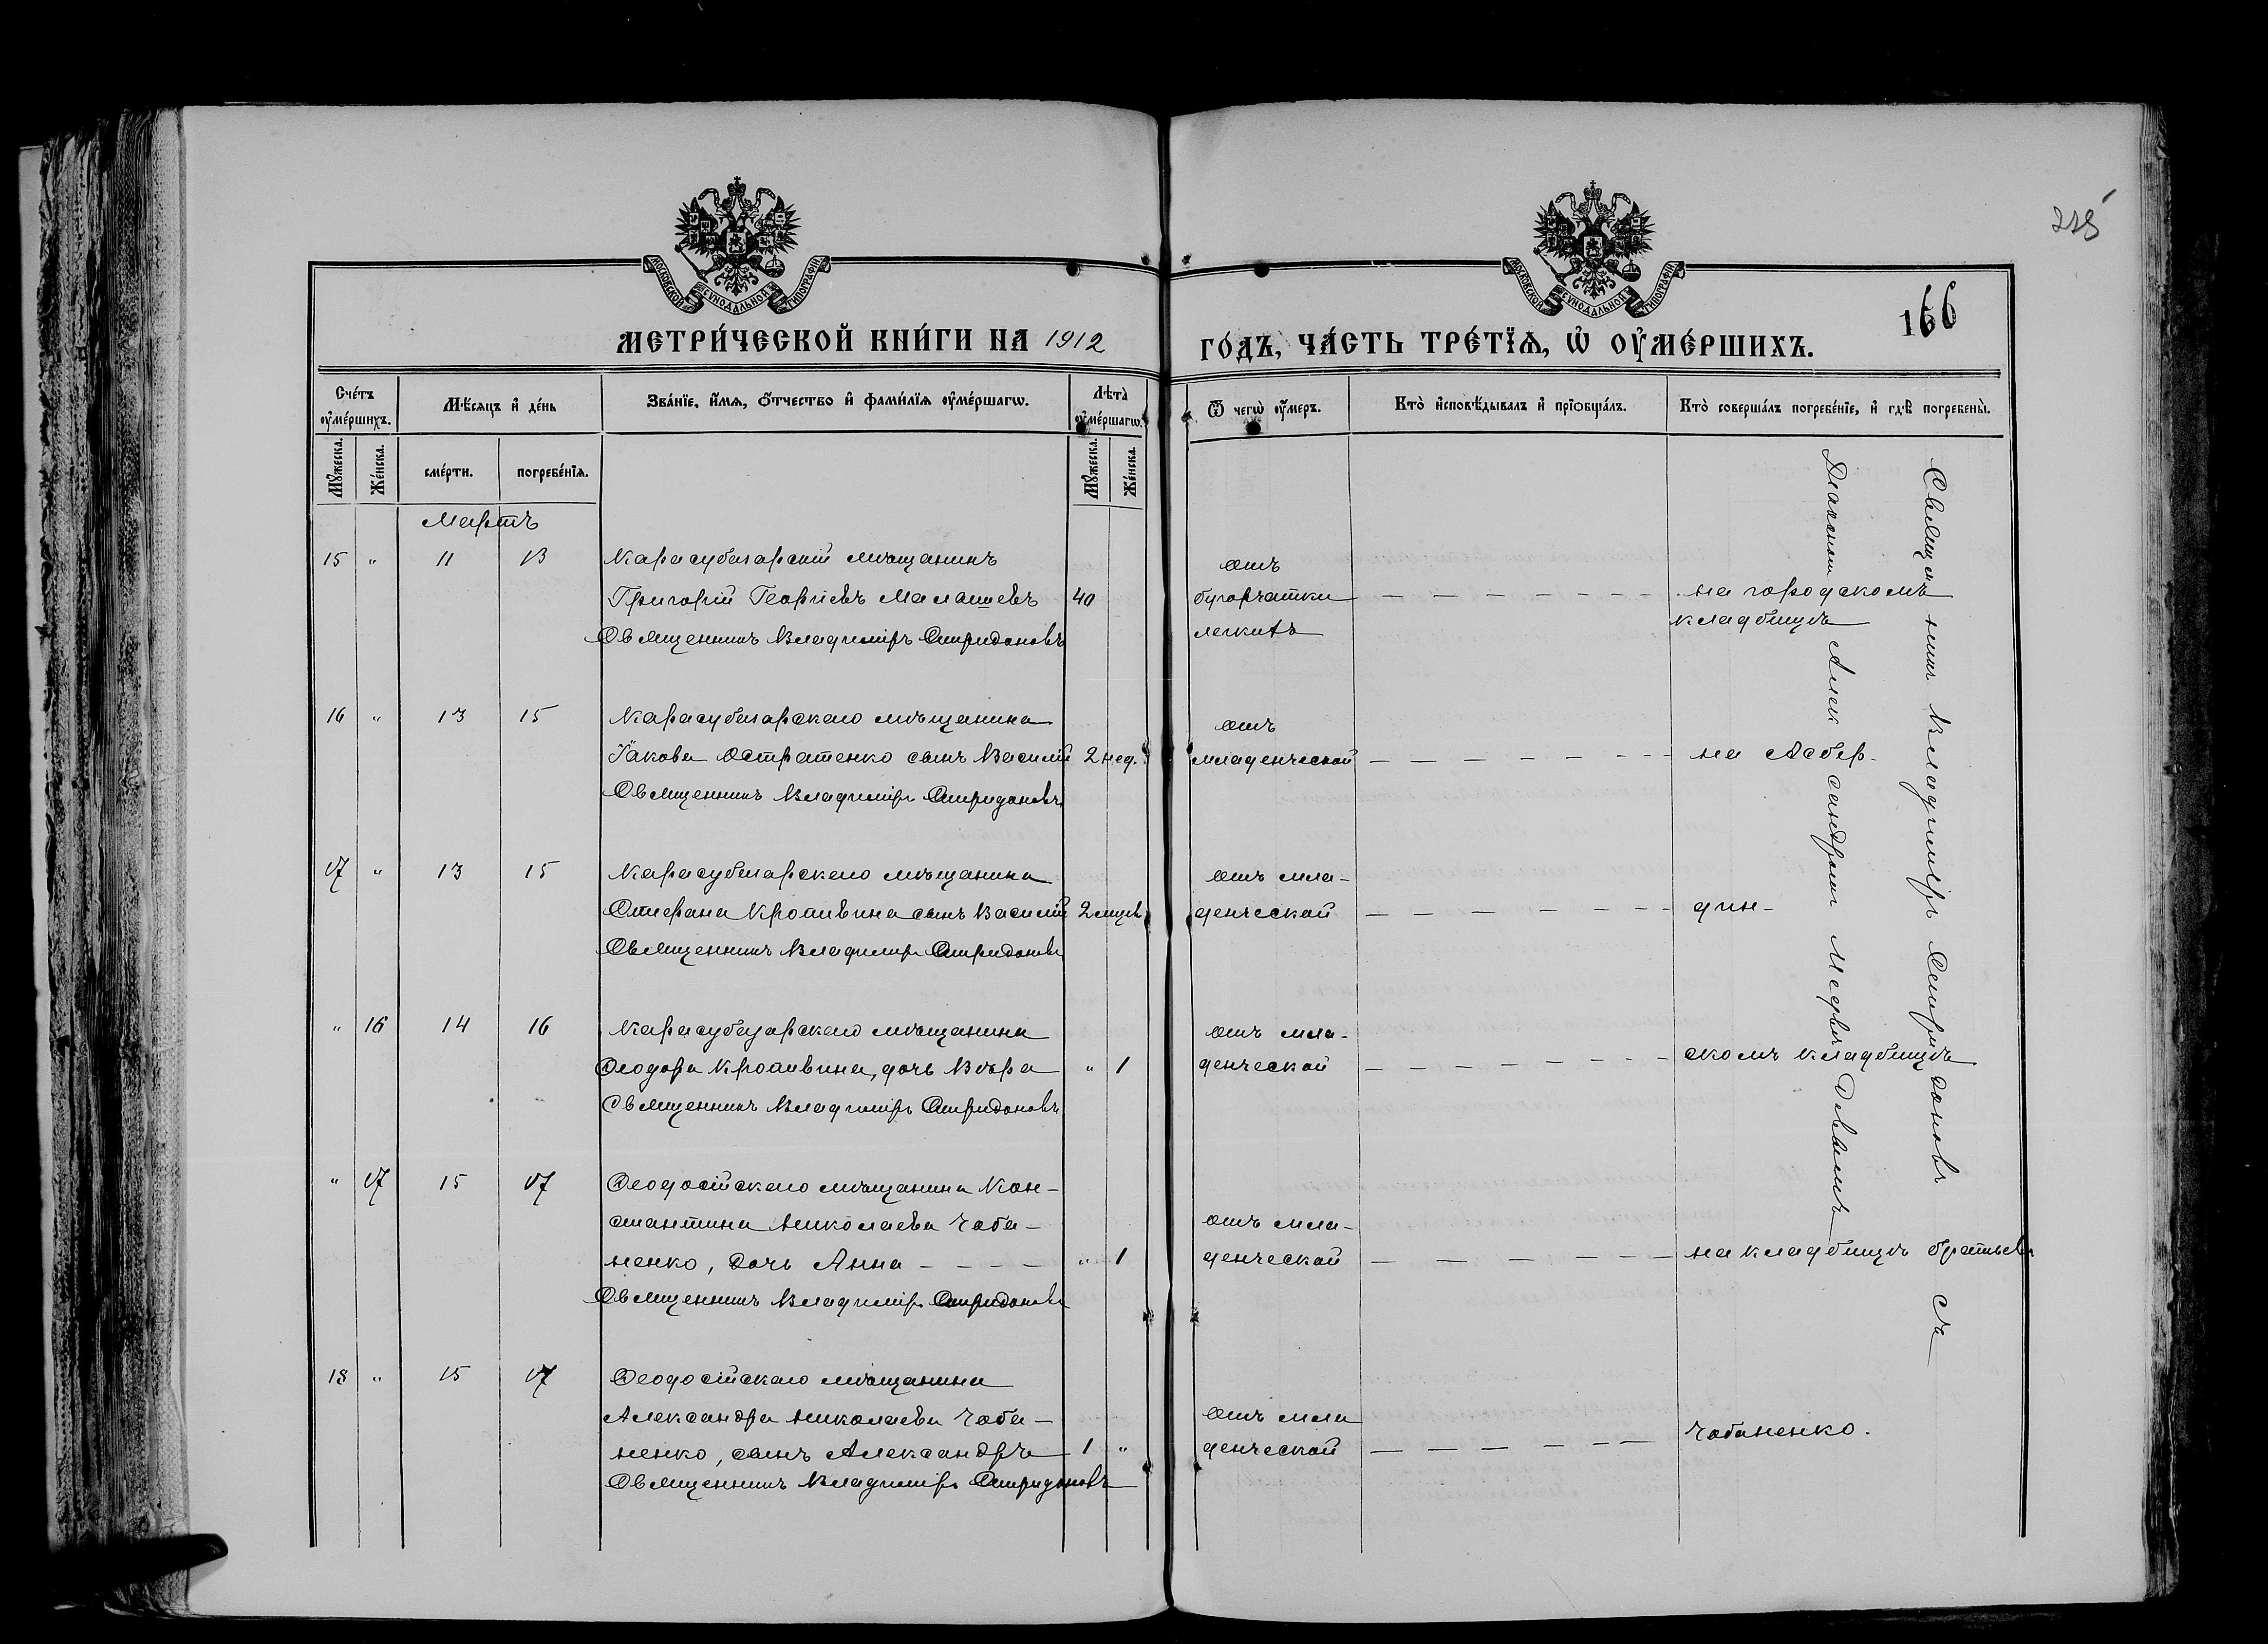 228
166
МОСКОВСКОЙ СѴНОДАЛЬНОЙ ТИПОГРАФІИ
МОСКОВСКОЙ СѴНОДАЛЬНОЙ ТИПОГРАФІИ
МЕТРИ́ЧЕСКОЙ КНИ́ГИ НА 1912
ГО́ДЪ, ЧА́СТЬ ТРЕ́ТЇѦ, Ѡ҆ ОУ҆МЕ́РШИХЪ.
Сче́тъ оу҆ме́ршихъ.
Мѣ́сѧцъ и҆ де́нь
Зва́нїе, и҆́мѧ, ѻ҆́тчество и҆ фами́лїѧ оу҆ме́ршагѡ.
Лѣта̀ оу҆ме́ршагѡ.
Ѿ чегѡ̀ оу҆́меръ.
Кто̀ и҆сповѣ́дывалъ и҆ прїѡбща́лъ.
Кто̀ соверша́лъ погребе́нїе, и҆ гдѣ̀ погребены̀.
Мꙋ́жеска.
Же́нска.
сме́рти.
погребе́нїѧ.
Мꙋ́жеска.
Же́нска.
Мартъ
15 " 11 13 Карасубазарскій мѣщанинъ
Григорій Георгіевъ Малашевъ 40
Священникъ Владиміръ Спиридоновъ
отъ
бугорчатки
легкихъ
на городскомъ
кладбищѣ
16 " 13 15 Карасубазарскаго мѣщанина
Іакова Остратенко сынъ Василій 2 нед.
Священникъ Владиміръ Спиридоновъ
отъ
младенческой
на Асбер-
17 " 13 15 Карасубазарскаго мѣщанина
Стефана Кропивина сынъ Василій 2 мцев
Священникъ Владиміръ Спиридоновъ
отъ мла-
денческой
дин-
" 16 14 16 Карасубазарскаго мѣщанина
Ѳеодора Кропивина, дочь Вѣра " 1
Священникъ Владиміръ Спиридоновъ
отъ мла-
денческой
скомъ кладбищѣ
" 17 15 17 Ѳеодосійскаго мѣщанина Кон-
стантина Николаева Чаба-
ненко, дочь Анна " 1
Священникъ Владиміръ Спиридоновъ
отъ мла-
денческой
на кладбищѣ братьевъ
18 " 15 17 Ѳеодосійскаго мѣщанина
Александра Николаева Чаба-
ненко, сынъ Александръ 1 "
Священникъ Владиміръ Спиридоновъ
отъ мла
денческой
Чабаненко.
Священникъ Владиміръ Спиридоновъ съ
Діакономъ Александромъ